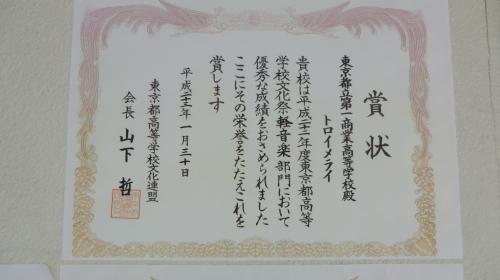 賞状
東京都立第一商業高等学校殿
トロイメライ
貴校は平成二十二年度東京都高等
学校文化祭軽音楽部門において
優秀な成績をおさめられました
ここにその栄誉をたたえこれを
賞します
平成二十三年一月三十日
東京都高等学校文化連盟
会長 山下哲